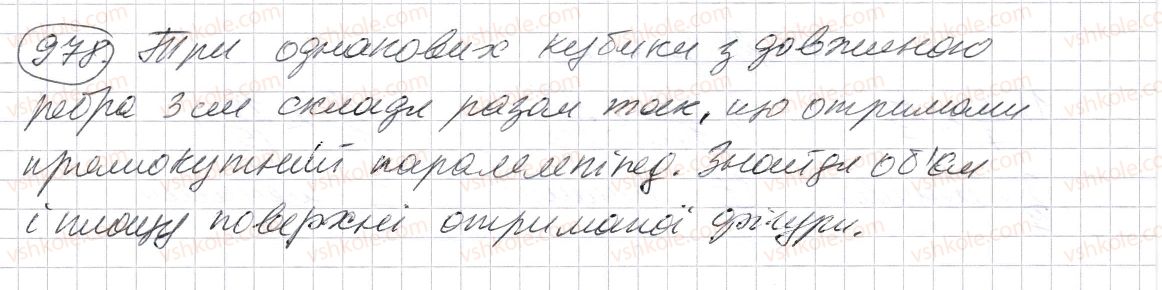 978. Три однакових кубики з довжиною
ребра 3 см склади разом так, що отримали
прямокутний паралелепіпед. Знайди об'єм
і площу поверхні отриманої фігури.